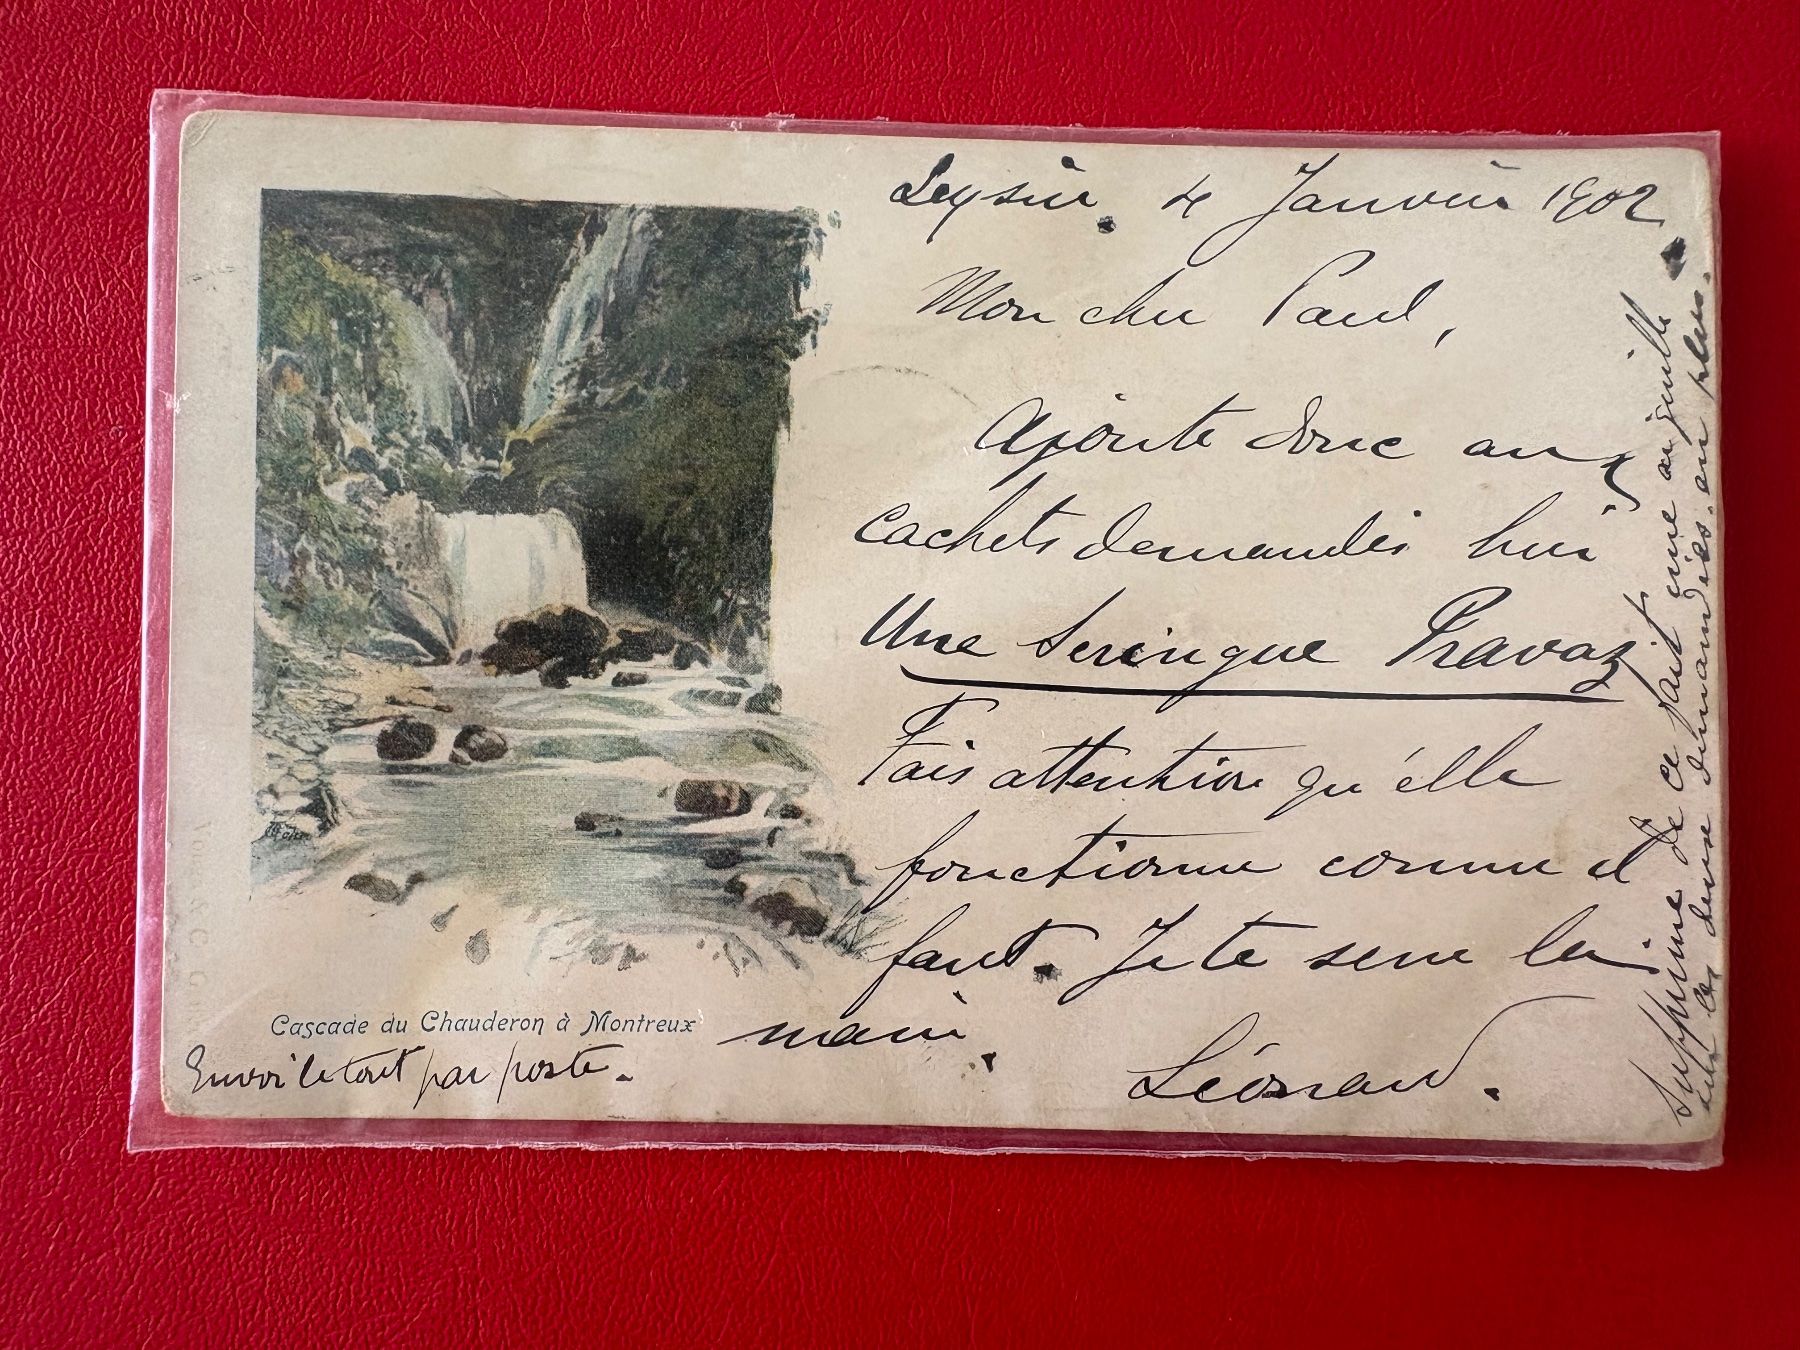 Leysin. 4 Janvier 1902.
Mon cher Paul,
Ajoute donc aux
cachets demandés hier
Une Seringue Pravaz
Fais attention qu'elle
fonctionne comme il
faut. Je te serre la
main.
Léonard.
Supprime de ce fait une aiguille
des deux demandées en plus.
Cascade du Chauderon à Montreux
Envoi le tout par poste.